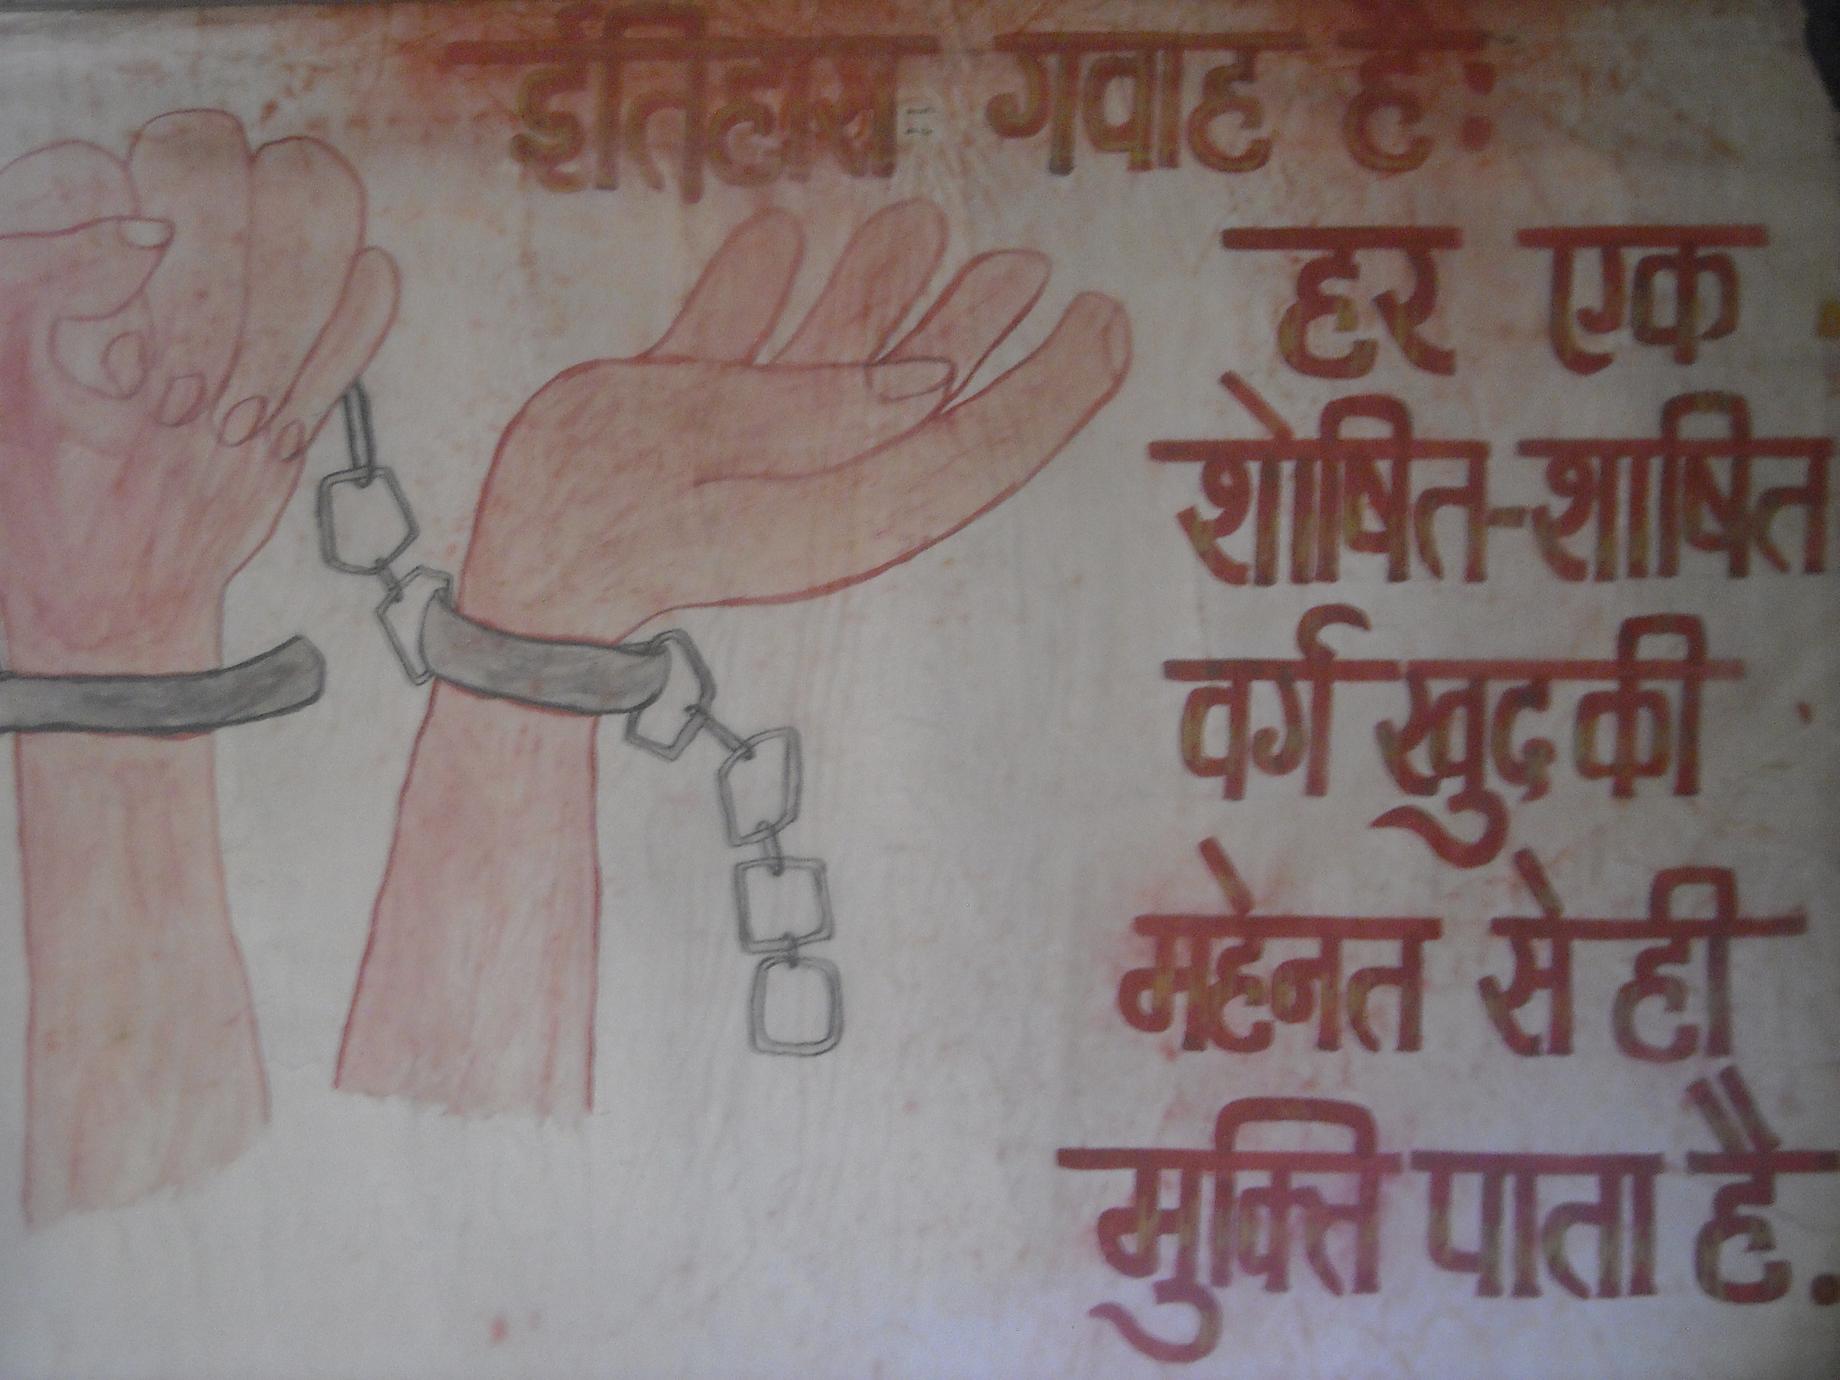 इतिहास गवाह है:
हर एक
शोषित-शाषित
वर्ग खुद की
महेनत से ही
मुक्ति पाता है.